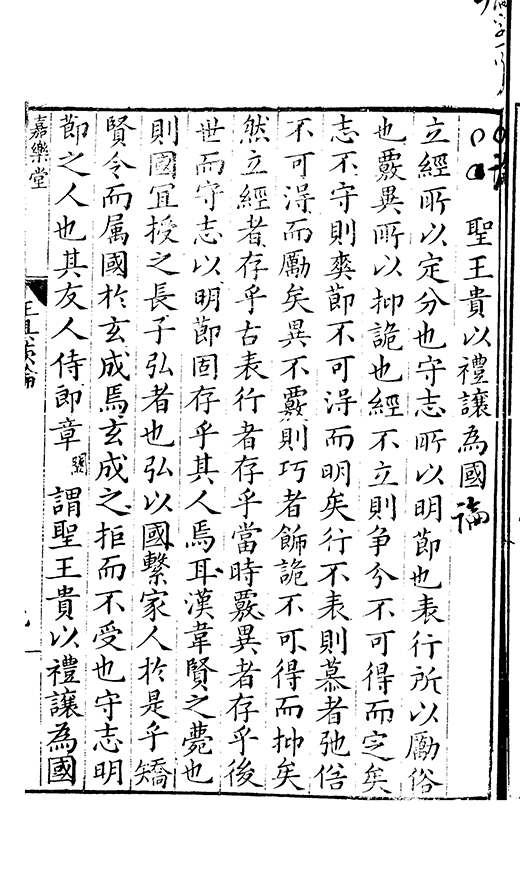 聖王貴以禮讓為國論
立經所以定分也守志所以明節也表行所以勵俗
也覈異所以抑詭也經不立則争分不可得而定矣
志不守則奕節不可淂而明矣行不表則慕者弛俗
不可淂而勵矣異不覈則巧者飾詭不可得而抑矣
然立經者存乎古表行者存乎當時覈異者存乎後
世而守志以明節固存乎其人焉耳漢韋賢之薨也
則國冝授之長子弘者也弘以國繫家人於是乎矯
賢令而属國於玄成焉玄成之拒而不受也守志明
節之人也其友人侍郎章 謂聖王貴以禮讓為國
嘉樂堂